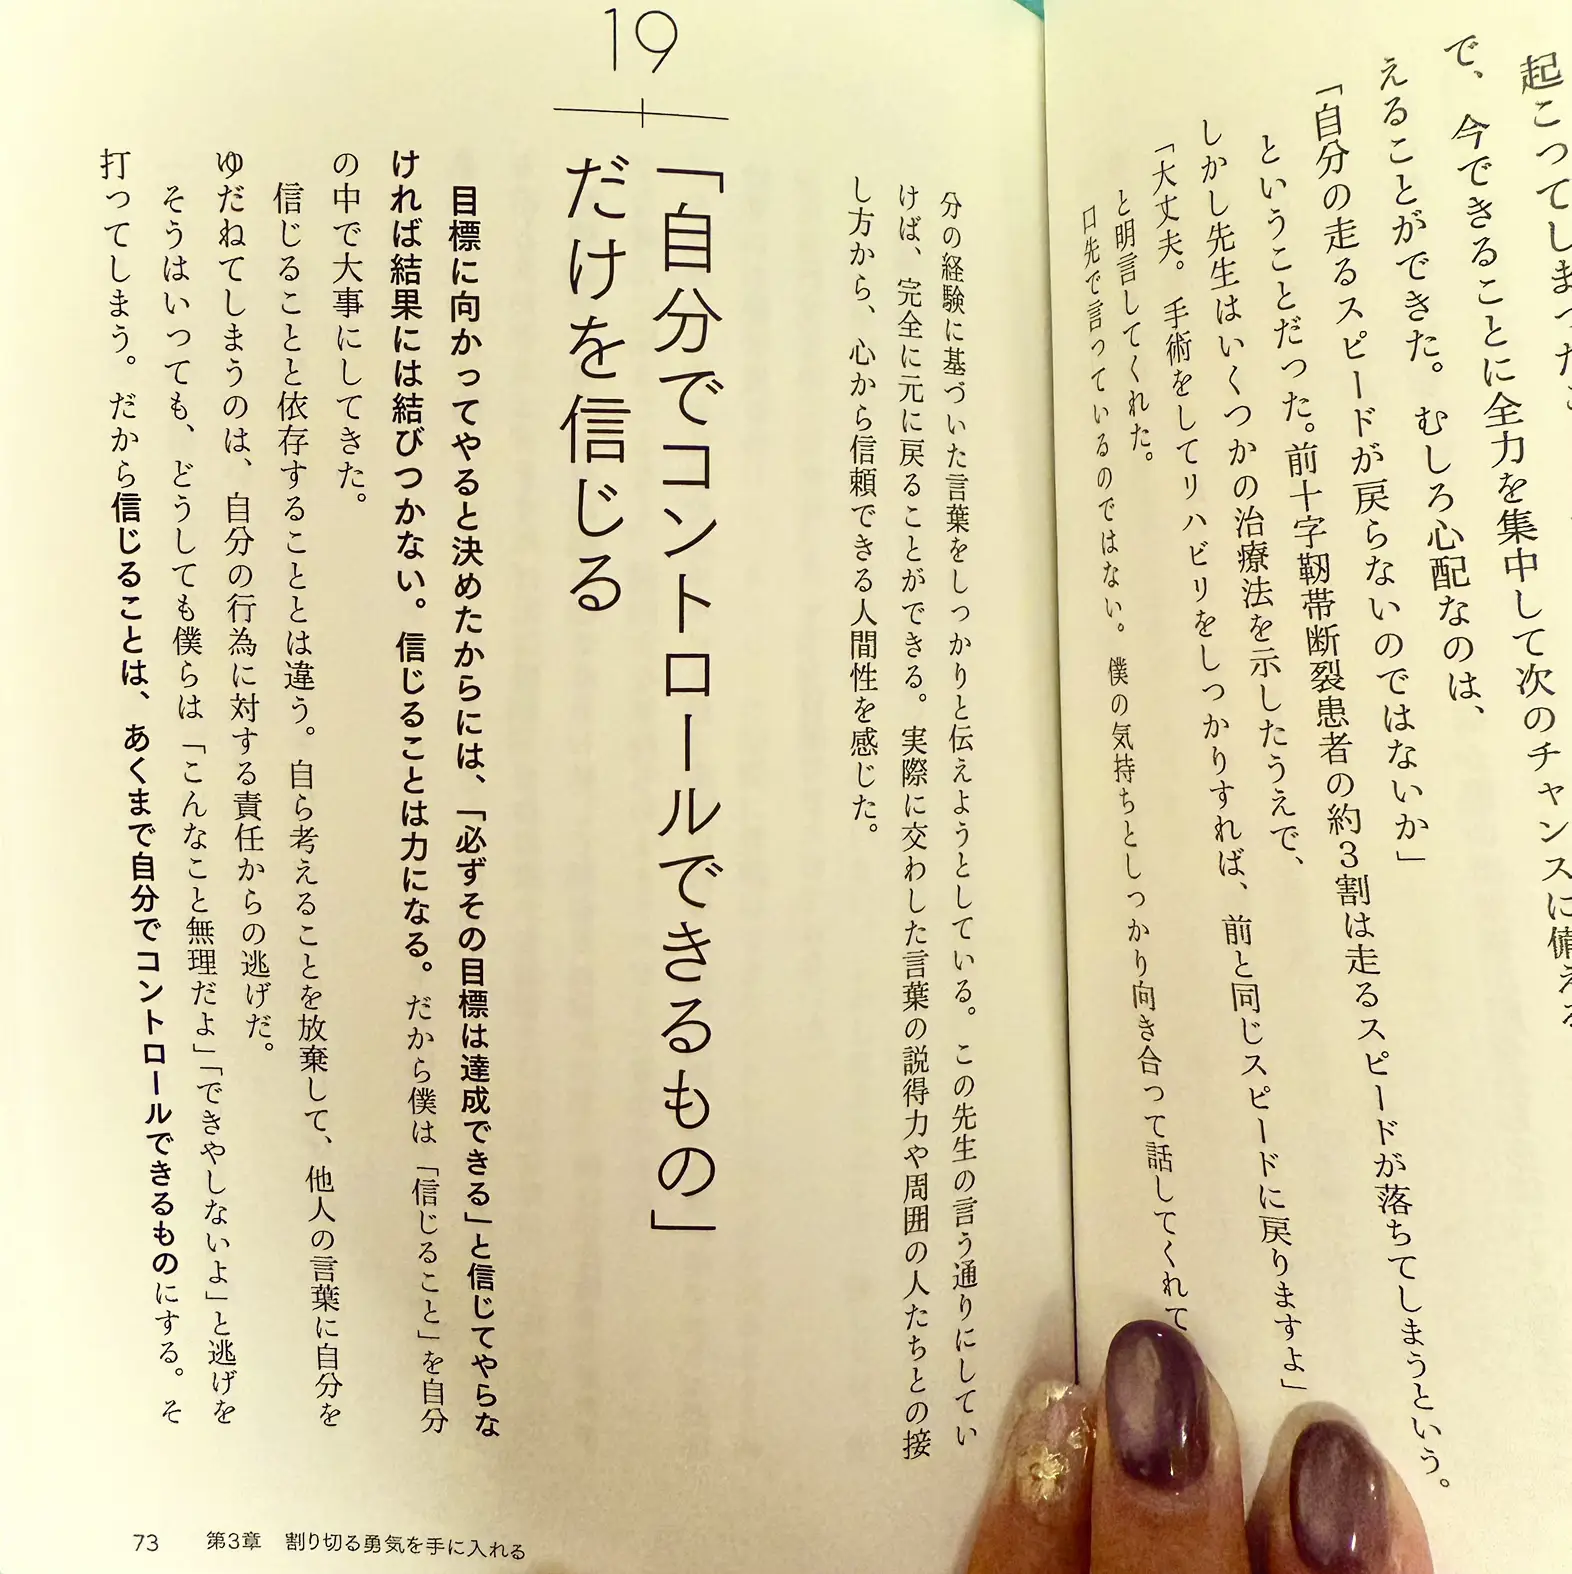 起こってしまった
で、今できることに全力を集中して次のチャンスに備える
えることができた。むしろ心配なのは、
「自分の走るスピードが戻らないのではないか」
ということだった。前十字靭帯断裂患者の約3割は走るスピードが落ちてしまうという。
しかし先生はいくつかの治療法を示したうえで、
「大丈夫。手術をしてリハビリをしっかりすれば、前と同じスピードに戻りますよ」
と明言してくれた。
口先で言っているのではない。僕の気持ちとしっかり向き合って話してくれて
分の経験に基づいた言葉をしっかりと伝えようとしている。この先生の言う通りにしてい
けば、完全に元に戻ることができる。実際に交わした言葉の説得力や周囲の人たちとの接
し方から、心から信頼できる人間性を感じた。
19
「自分でコントロールできるもの」
だけを信じる
目標に向かってやると決めたからには、「必ずその目標は達成できる」と信じてやらな
ければ結果には結びつかない。信じることは力になる。だから僕は「信じること」を自分
の中で大事にしてきた。
信じることと依存することとは違う。自ら考えることを放棄して、他人の言葉に自分を
ゆだねてしまうのは、自分の行為に対する責任からの逃げだ。
そうはいつても、どうしても僕らは「こんなこと無理だよ」「できやしないよ」と逃げを
打ってしまう。だから信じることは、あくまで自分でコントロールできるものにする。そ
73 第3章 割り切る勇気を手に入れる